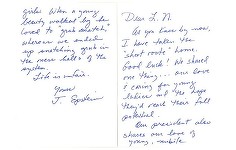 girls. When a young
beauty walked by he
loved to "grab snatch,"
whereas we ended
up snatching grub in
the mess halls of the
system.
Life is unfair.
Yours
J. Epstein
Dear L.N.
As you know by now,
I have taken the
"short route" home.
Good luck! We shared
one thing... our love
& caring for young
ladies at the hope
they'd reach their full
potential.
Our president also
shares our love of
young, nubile